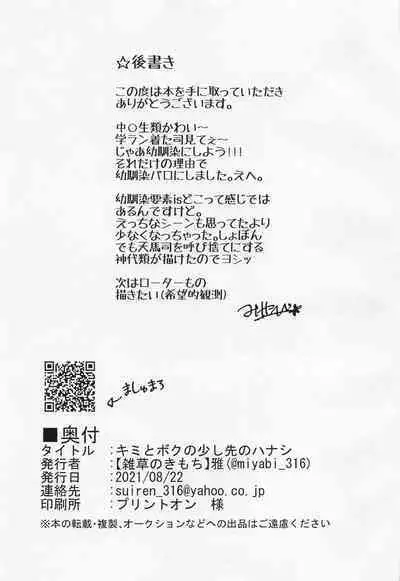 ☆後書き
この度は本を手に取っていただき
ありがとうございます。
中○生類かわい〜
学ラン着た司見てぇ〜
じゃあ幼馴染にしよう!!!
それだけの理由で
幼馴染パロにしました。えへ。
幼馴染要素isどこって感じでは
あるんですけど。
えっちなシーンも思ってたより
少なくなっちゃった。しょぼん
でも天馬司を呼び捨てにする
神代類が描けたのでヨシッ
次はローターもの
描きたい(希望的観測)
ましゅまろ
■奥付
タイトル:キミとボクの少し先のハナシ
発行者:【雑草のきもち】雅(@miyabi_316)
発行日:2021/08/22
連絡先:suiren_316@yahoo.co.jp
印刷所:プリントオン 様
※本の転載・複製、オークションなどへの出品はご遠慮ください